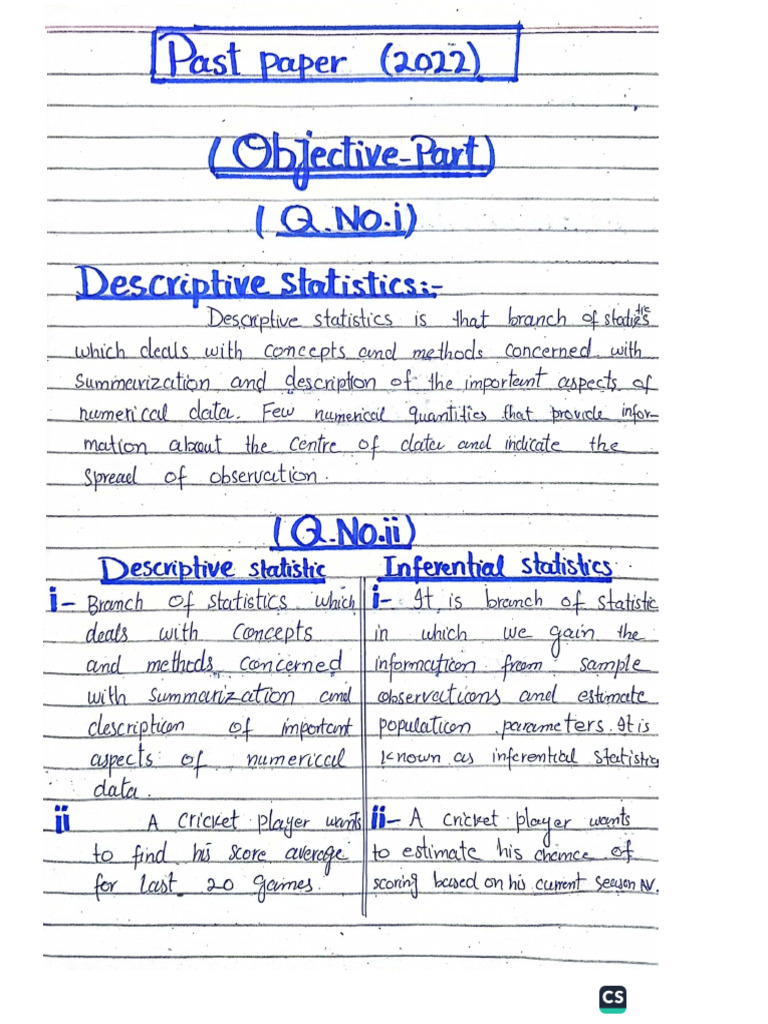 Past paper (2022)
(Objective-Part)
(Q.No.i)
Descriptive statistics:-
Descriptive statistics is that branch of statistics
which deals with concepts and methods concerned with
summarization and description of the important aspects of
numerical data. Few numerical quantities that provide infor-
mation about the centre of data and indicate the
spread of observation.
(Q.No.ii)
Descriptive statistic
i- Branch of statistics which
deals with concepts
and methods concerned
with summarization and
description of important
aspects of numerical
data.
ii A cricket player wants
to find his score average
for last 20 games.
Inferential statistics
i- It is branch of statistic
in which we gain the
information from sample
observations and estimate
population parameters. It is
known as inferential statistics
ii- A cricket player wants
to estimate his chance of
scoring based on his current season AV.
CS